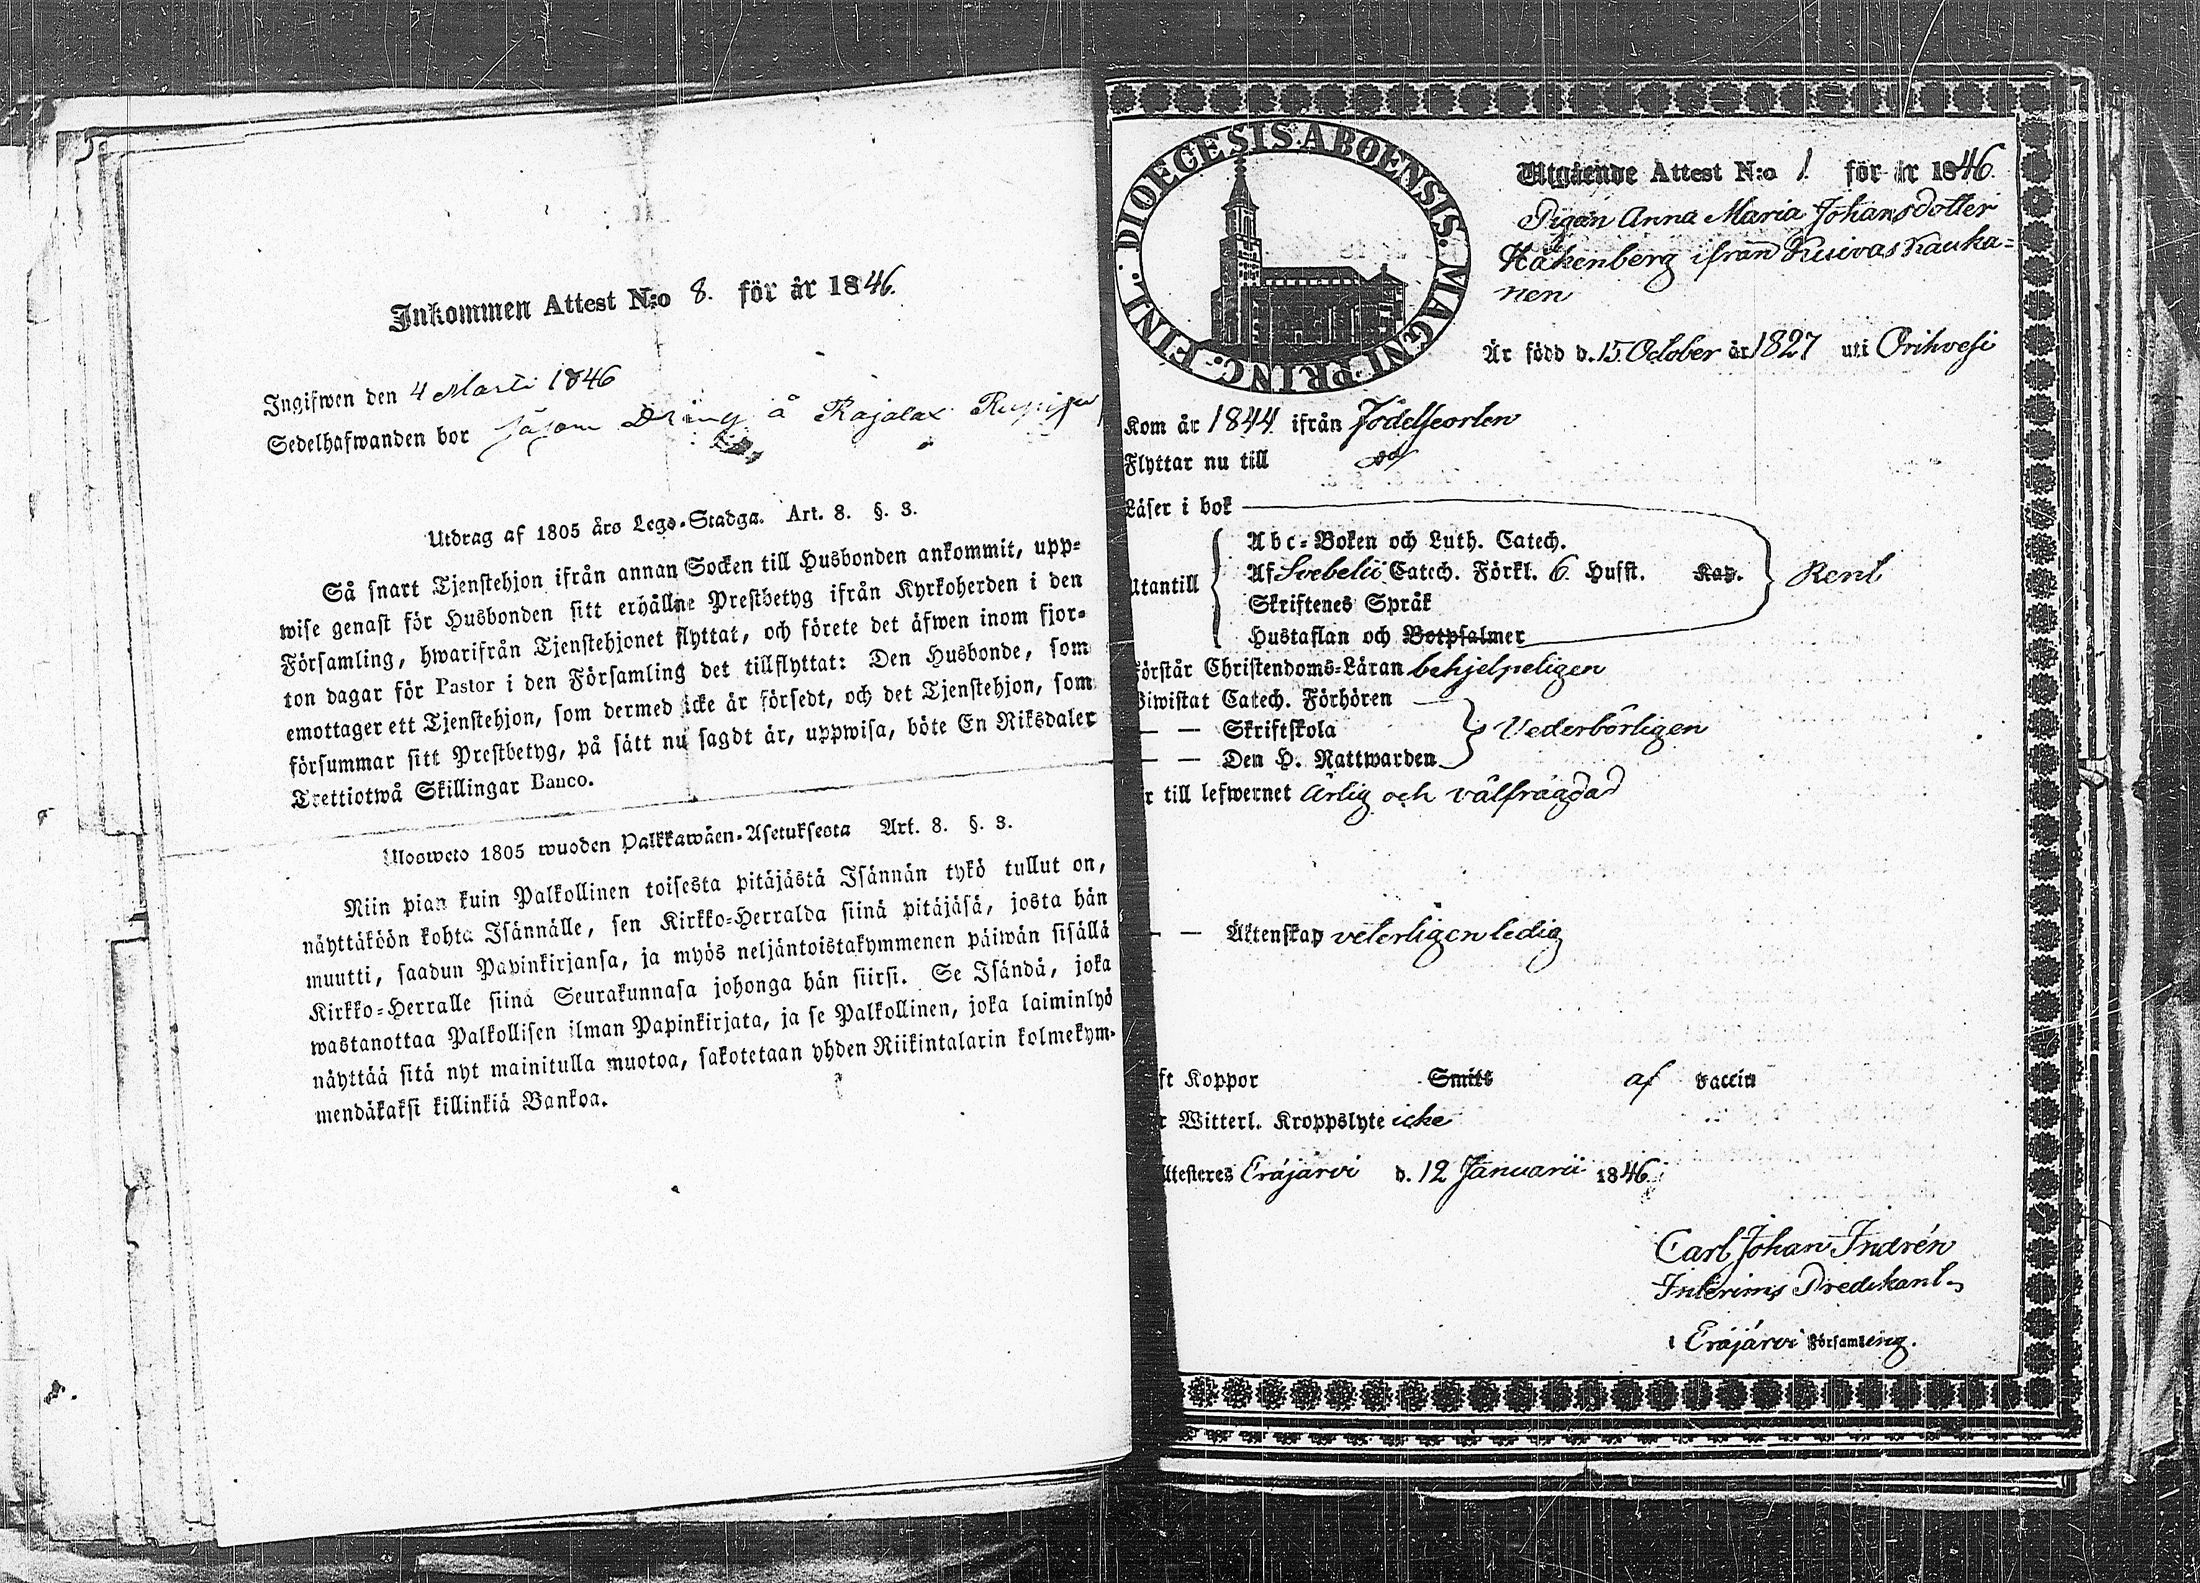 Inkommen Attest N:o 8. för år 1846.
Ingifwen den 4 Marti 1846
Sedelhafwanden bor såsom Dräng å Rajalax
Utdrag af 1805 års Lego-Stadga. Art. 8. §. 3.
Så snart Tjenstehjon ifrån annan Socken till Husbonden ankommit, upp=
wise genast för Husbonden sitt erhållne Prestbetyg ifrån Kyrkoherden i den
Församling, hwarifrån Tjenstehjonet flyttat, och förete det äfwen inom fjor=
ton dagar för Pastor i den Församling det tillflyttat: Den Husbonde, som
emottager ett Tjenstehjon, som dermed icke är försedt, och det Tjenstehjon, som
försummar sitt Prestbetyg, på sätt nu sagdt är, uppwisa, böte En Riksdaler
Trettiotwå Skillingar Banco.
Ulosweto 1805 wuoden Palkkawäen-Asetuksesta Art. 8. §. 3.
Niin pian kuin Palkollinen toisesta pitäjästä Isännän tykö tullut on,
näyttäköön kohta Isännälle, sen Kirkko=Herralda siinä pitäjäsä, josta hän
muutti, saadun Papinkirjansa, ja myös neljäntoistakymmenen päiwän sisällä
Kirkko=Herralle siinä Seurakunnasa johonga hän siirsi. Se Isändä, joka
wastanottaa Palkollisen ilman Papinkirjata, ja se Palkollinen, joka laiminlyö
näyttää sitä nyt mainitulla muotoa, sakotetaan yhden Riikintalarin kolmekym-
mendäkaksi killinkiä Bankoa.
DIOECESIS ABOENSIS. MAGNI PRINC. FINL.
Utgående Attest N:o 1 för år 1846
Pigan Anna Maria Johansdotter
Håkenberg ifrån Kuivas Kauka=
nen
Är född d. 15 October år 1827 uti Orihvesi
Kom år 1844 ifrån
Flyttar nu till
Läser i bok
Abc=Boken och Luth. Catech.
Utantill Af Svebelii Catech. Förkl. 6 Husst. Kap. Rent
Skriftenes Språk
Hustaflan och Botpsalmer
förstår Christendoms=Läran behjelpeligen
Biwistat Catech. Förhören
— — Skriftskola Vederbörligen
— — Den H. Nattwarden
r till lefwernet ärlig och välfrägdad
— — Äktenskap veterligen ledig
ft Koppor Smitt af vaccin
r Witterl. Kroppslyte icke
Attesteres Eräjärvi d. 12 Januarii 1846
Carl Johan Indrén
Interims Predikant
i Eräjärvi Församling.